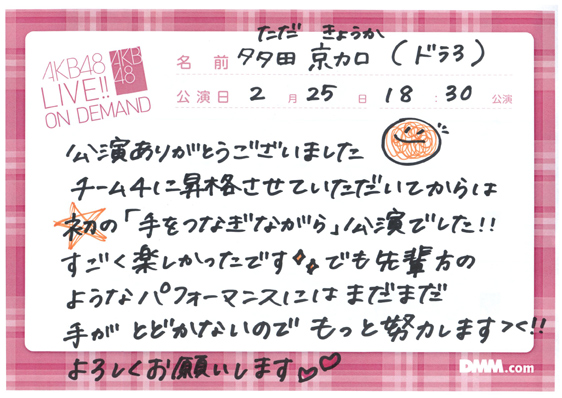 AKB48
LIVE!!
ON DEMAND
AKB
48
ただ きょうか
名前 多田 京加 (ドラ3)
公演日 2月25日 18:30公演
公演ありがとうございました
チーム4に昇格させていただいてからは
初の「手をつなぎながら」公演でした!!
すごく楽しかったです でも先輩方の
ようなパフォーマンスにはまだまだ
手がとどかないので もっと努力しますつく!!
よろしくお願いします
DMM.com